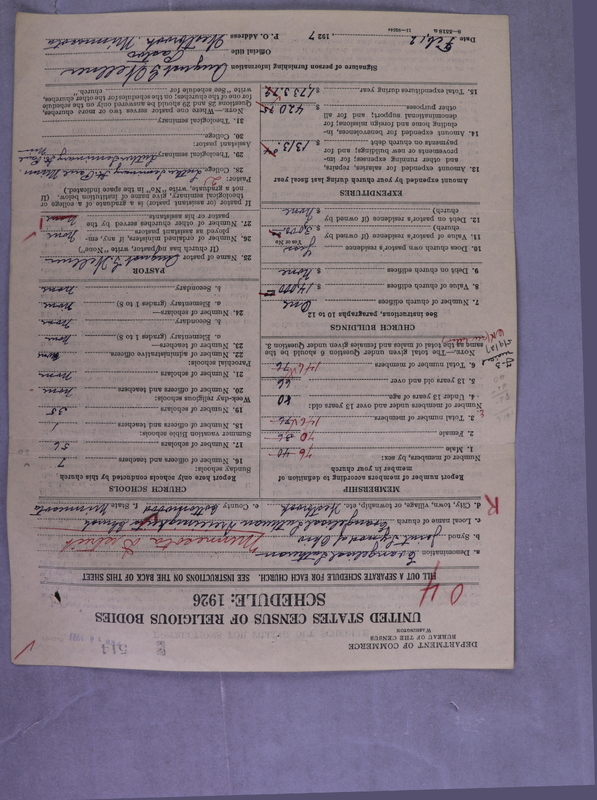 DEPARTMENT OF COMMERCE
BUREAU OF THE CENSUS
WASHINGTON
514
UNITED STATES CENSUS OF RELIGIOUS BODIES
SCHEDULE: 1926
FILL OUT A SEPARATE SCHEDULE FOR EACH CHURCH. SEE INSTRUCTIONS ON THE BACK OF THIS SHEET
a. Denomination Evangelical Lutheran
b. Synod Joint Synod of Ohio Minnesota District
c. Local name of church Evangelical Lutheran Church
d. City, town, village, or township, etc. Westbrook e. County Cottonwood f. State Minnesota
MEMBERSHIP
Report number of members according to definition of member in your church
Number of members, by sex:
1. Male
2. Female
3. Total number of members
Number of members under and over 13 years old:
4. Under 13 years of age
5. 13 years old and over 66
6. Total number of members 146
NOTE.—The total given under Question 6 should be the
same as the total of males and females given under Question 3.
CHURCH BUILDINGS
See Instructions, paragraphs 10 to 12
7. Number of church edifices One
8. Value of church edifices $ 14,000
9. Debt on church edifices $ None
10. Does church own pastor's residence Yes
Yes or No
11. Value of pastor's residence (if owned by
church) $
12. Debt on pastor's residence (if owned by
church) $ None
EXPENDITURES
Amount expended by church during last fiscal year
13. Amount expended for salaries, repairs,
and other running expenses; for im-
provements or new buildings; and for
payments on church debt $
14. Amount expended for benevolences, in-
cluding home and foreign missions; for
denominational support; and for all
other purposes $ 420.75
15. Total expenditures during year $
CHURCH SCHOOLS
Report here only schools conducted by this church
Sunday schools:
16. Number of officers and teachers 7
17. Number of scholars 56
Summer vacation Bible schools:
18. Number of officers and teachers 1
19. Number of scholars 35
Week-day religious schools:
20. Number of officers and teachers None
21. Number of scholars None
Parochial schools:
22. Number of administrative officers None
23. Number of teachers—
a. Elementary (grades 1 to 8) None
b. Secondary None
24. Number of scholars—
a. Elementary (grades 1 to 8) None
b. Secondary None
PASTOR
25. Name of pastor August G. Hellner
(If church has no pastor, write "None")
26. Number of ordained ministers, if any, em-
ployed as assistant pastors None
27. Number of other churches served by the
pastor or his assistants None
If pastor (or assistant pastor) is a graduate of a college or
theological seminary, give name of institution below. (If
not a graduate, write "No" in the space indicated.)
Pastor:
28. College Luther Seminary St. Paul Minn
29. Theological seminary Luther Seminary St. Paul Minn
Assistant pastor:
30. College
31. Theological seminary
NOTE.—Where one pastor serves two or more churches,
Questions 28 and 29 should be answered only on the schedule
for one of the churches; on the schedules for the other churches,
write "See schedule for
church."
Signature of person furnishing information August G. Hellner
Official title Pastor
Date Feb. 12, 1927 P. O. Address Westbrook Minnesota